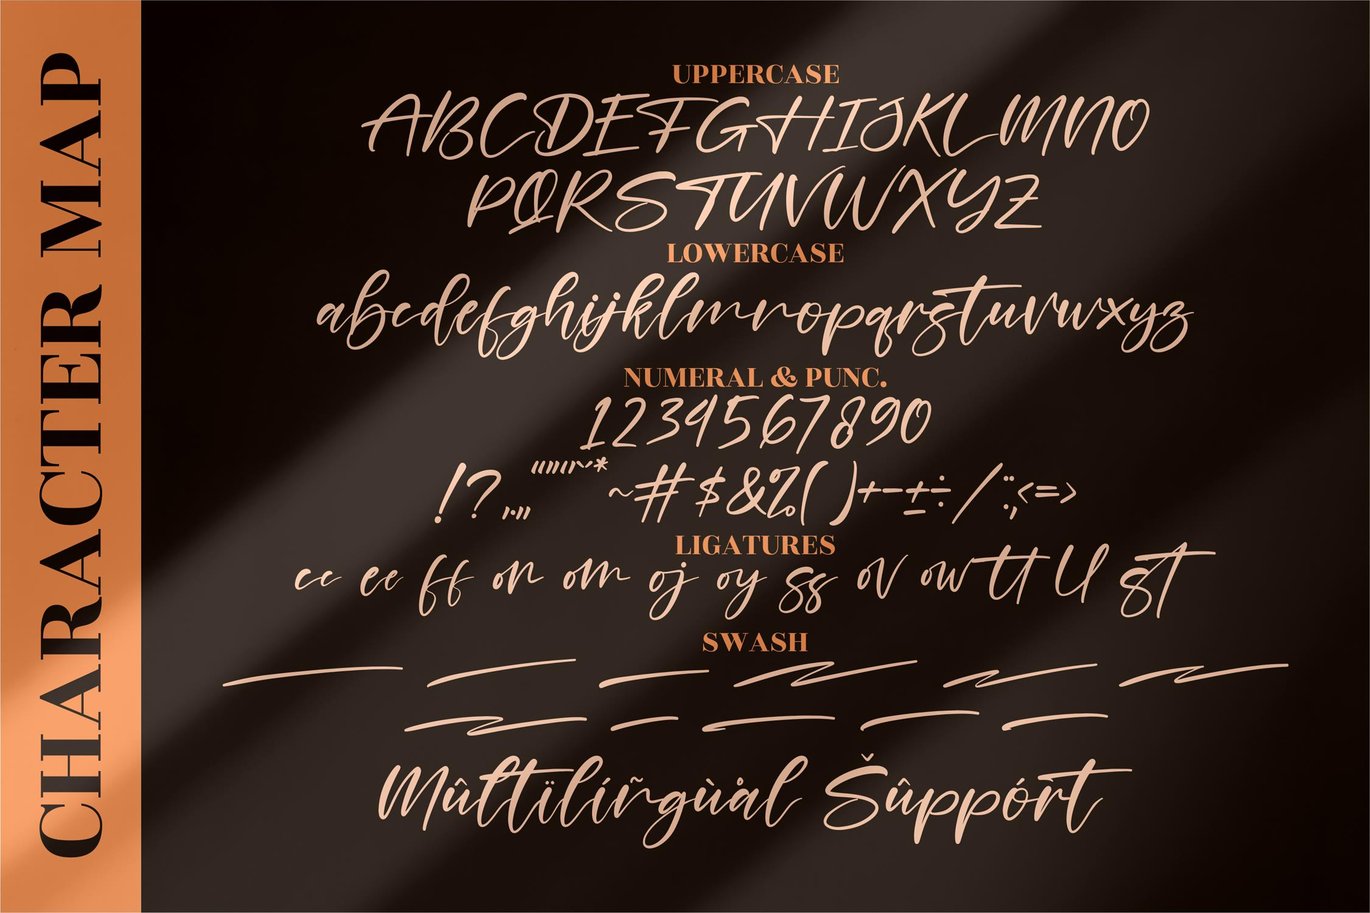 CHARACTER MAP
UPPERCASE
ABCDEFGHIJKLMNO
PQRSTUVWXYZ
LOWERCASE
abcdefghijklmnopqrstuvwxyz
NUMERAL & PUNC.
1234567890
!?.,„ “”‘’* ~#$&%()+-±÷/:;<=>
LIGATURES
cc ee ff on om oj oy ss ov ow tt ll st
SWASH
Mûltïlíñgùål Šûppórt